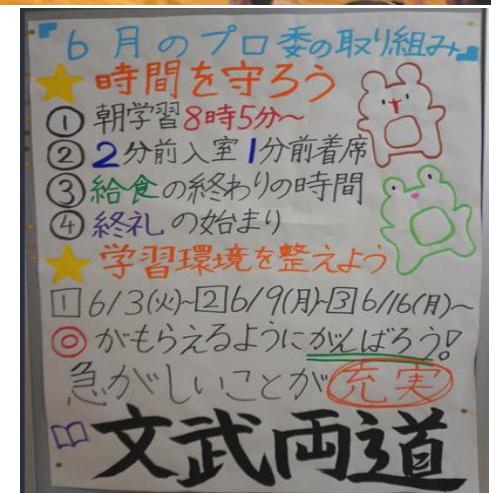 6月のプロ委の取り組み
時間を守ろう
① 朝学習8時5分〜
② 2分前入室 1分前着席
③ 給食の終わりの時間
④ 終礼の始まり
学習環境を整えよう
1 6/3(火)〜 2 6/9(月)〜 3 6/16(月)〜
◎がもらえるようにがんばろう!
急がしいことが充実
文武両道